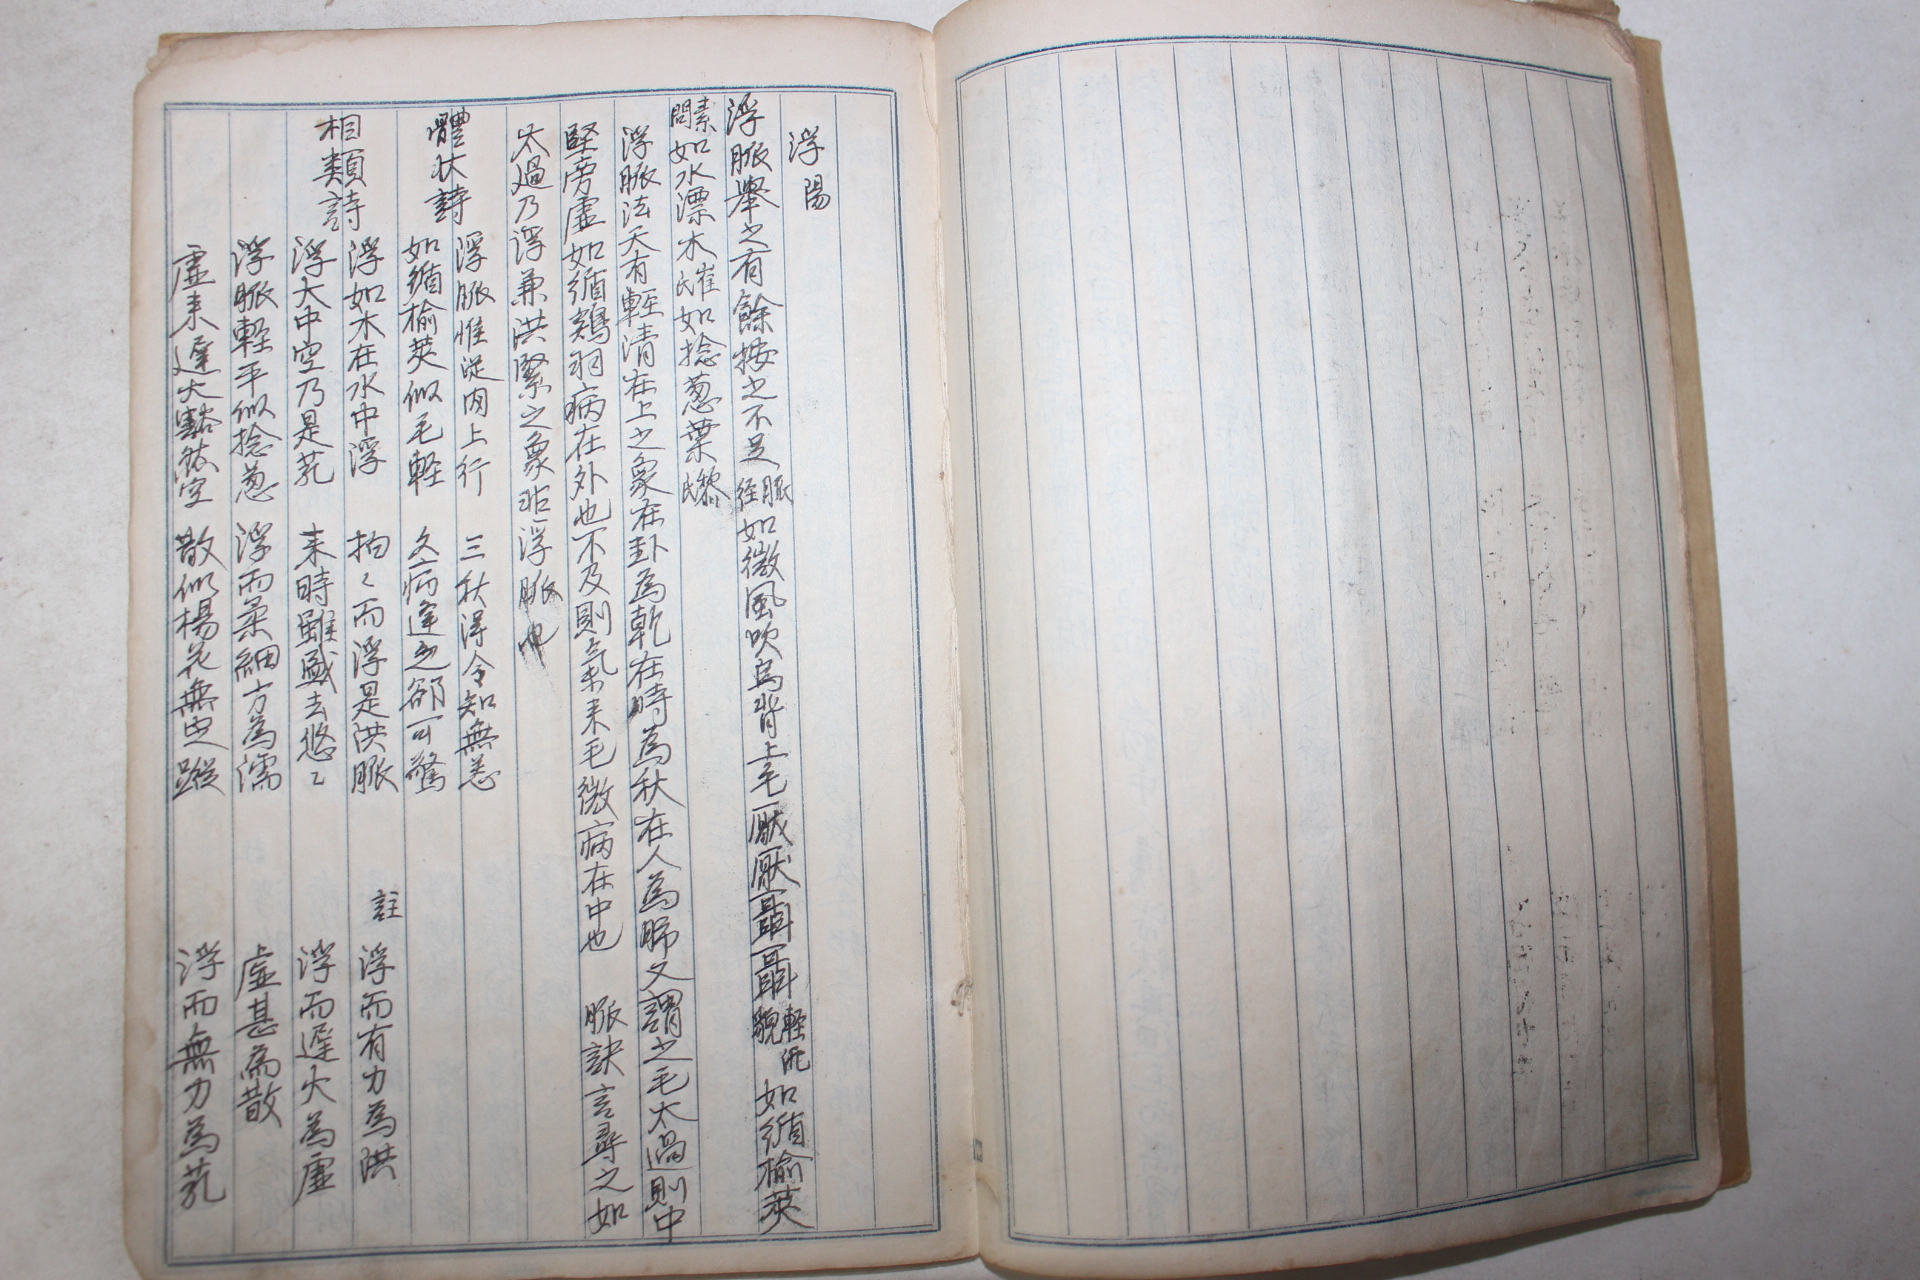 浮 陽
浮脈舉之有餘按之不足脈經如微風吹鳥背上毛厭厭聶聶輕汎貌如循榆莢
素問如水漂木崔氏如捻葱葉黎氏
浮脈法天有輕清在上之象在卦為乾在時為秋在人為肺又謂之毛太過則中
堅旁虛如循鷄羽病在外也不及則氣來毛微病在中也 脈訣言尋之如
太過乃浮兼洪緊之象非浮脈也
體状詩 浮脈惟從肉上行 三秋得令知無恙
如循榆莢似毛輕 久病逢之郤可驚
相類詩 浮如木在水中浮 拍〻而浮是洪脈 註 浮而有力為洪
浮大中空乃是芤 来時雖盛去悠〻 浮而遲大為虛
浮脈軽平似捻葱 浮而柔細方為濡 虛甚為散
虛来遲大豁然空 散似楊花無定蹤 浮而無力為芤